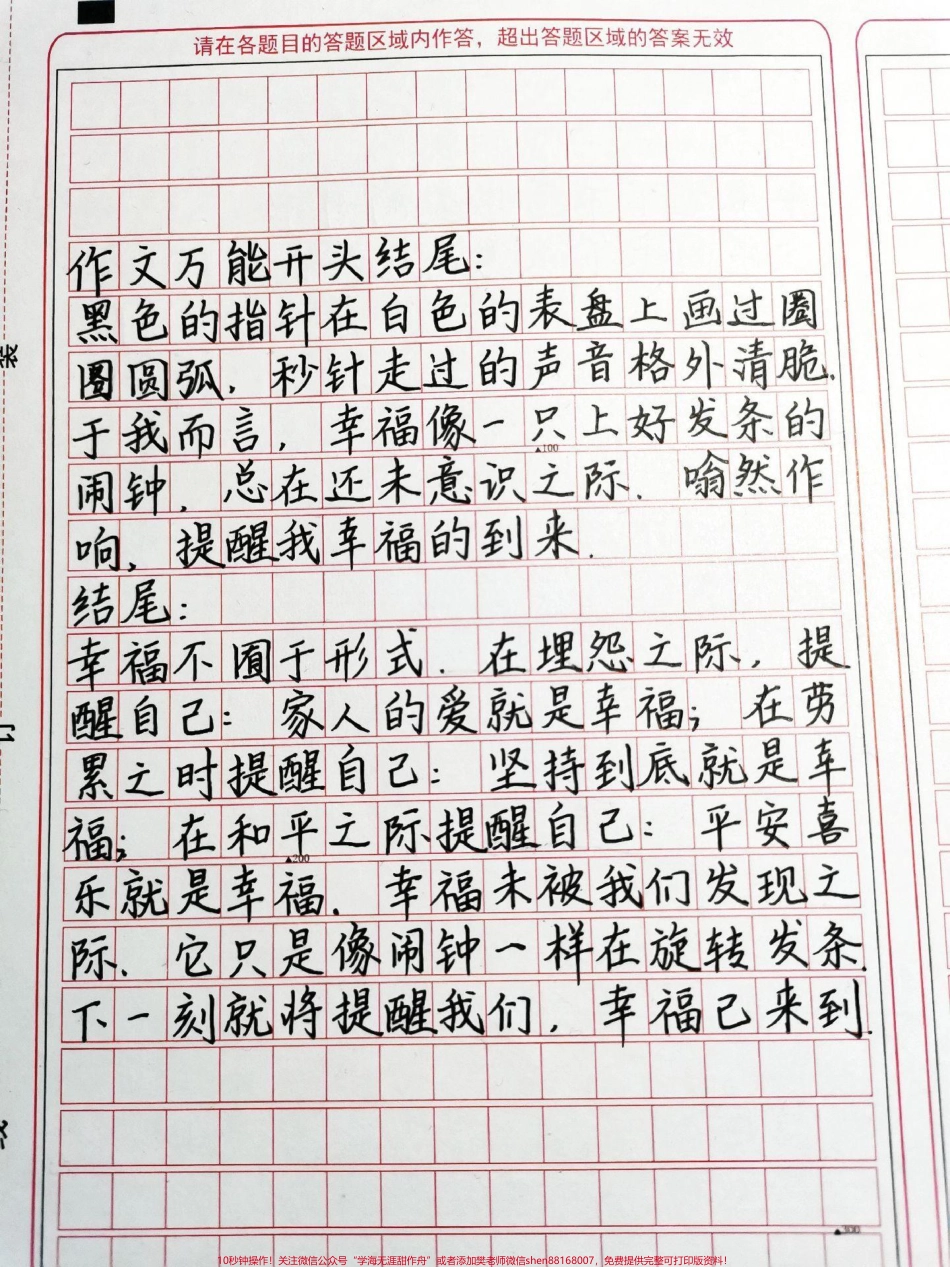 请在各题目的答题区域内作答，超出答题区域的答案无效
作文万能开头结尾：
黑色的指针在白色的表盘上画过圈
圈圆弧．秒针走过的声音格外清脆．
于我而言，幸福像一只上好发条的
▲100
闹钟，总在还未意识之际．嗡然作
响，提醒我幸福的到来．
结尾：
幸福不囿于形式．在埋怨之际，提
醒自己：家人的爱就是幸福；在劳
累之时提醒自己：坚持到底就是幸
福；在和平之际提醒自己：平安喜
▲200
乐就是幸福．幸福未被我们发现之
际．它只是像闹钟一样在旋转发条．
下一刻就将提醒我们，幸福已来到．
▲300
装
订
10秒钟操作！关注微信公众号“学海无涯甜作舟”或者添加樊老师微信shen88168007，免费提供完整可打印版资料！